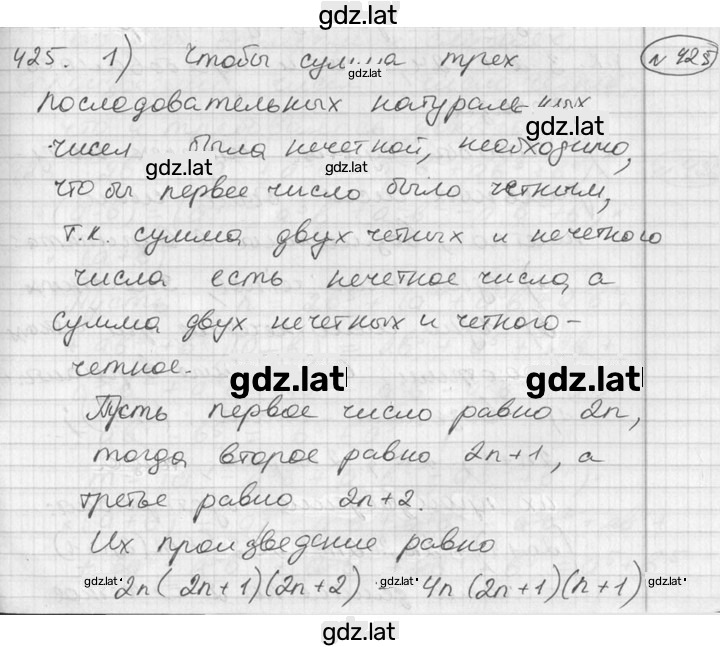 gdz.lat
425. 1) Чтобы сумма трех
gdz.lat
№ 425
последовательных натуральных
gdz.lat
чисел была нечетной, необходимо,
gdz.lat
чтобы первое число было четным,
т.к. сумма двух четных и нечетного
числа есть нечетное число, а
сумма двух нечетных и четного-
четное.
gdz.lat gdz.lat
Пусть первое число равно 2n,
тогда второе равно 2n+1, а
третье равно 2n+2.
Их произведение равно
gdz.lat 2n(2n+1)(2n+2) gdz.lat 4n(2n+1)(n+1) gdz.lat
gdz.lat